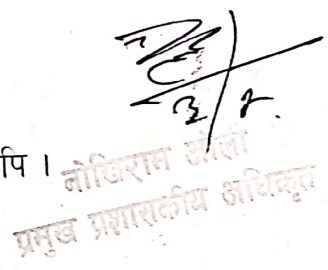 पि ।
नोखिराम ओली
प्रमुख प्रशासकीय अधिकृत